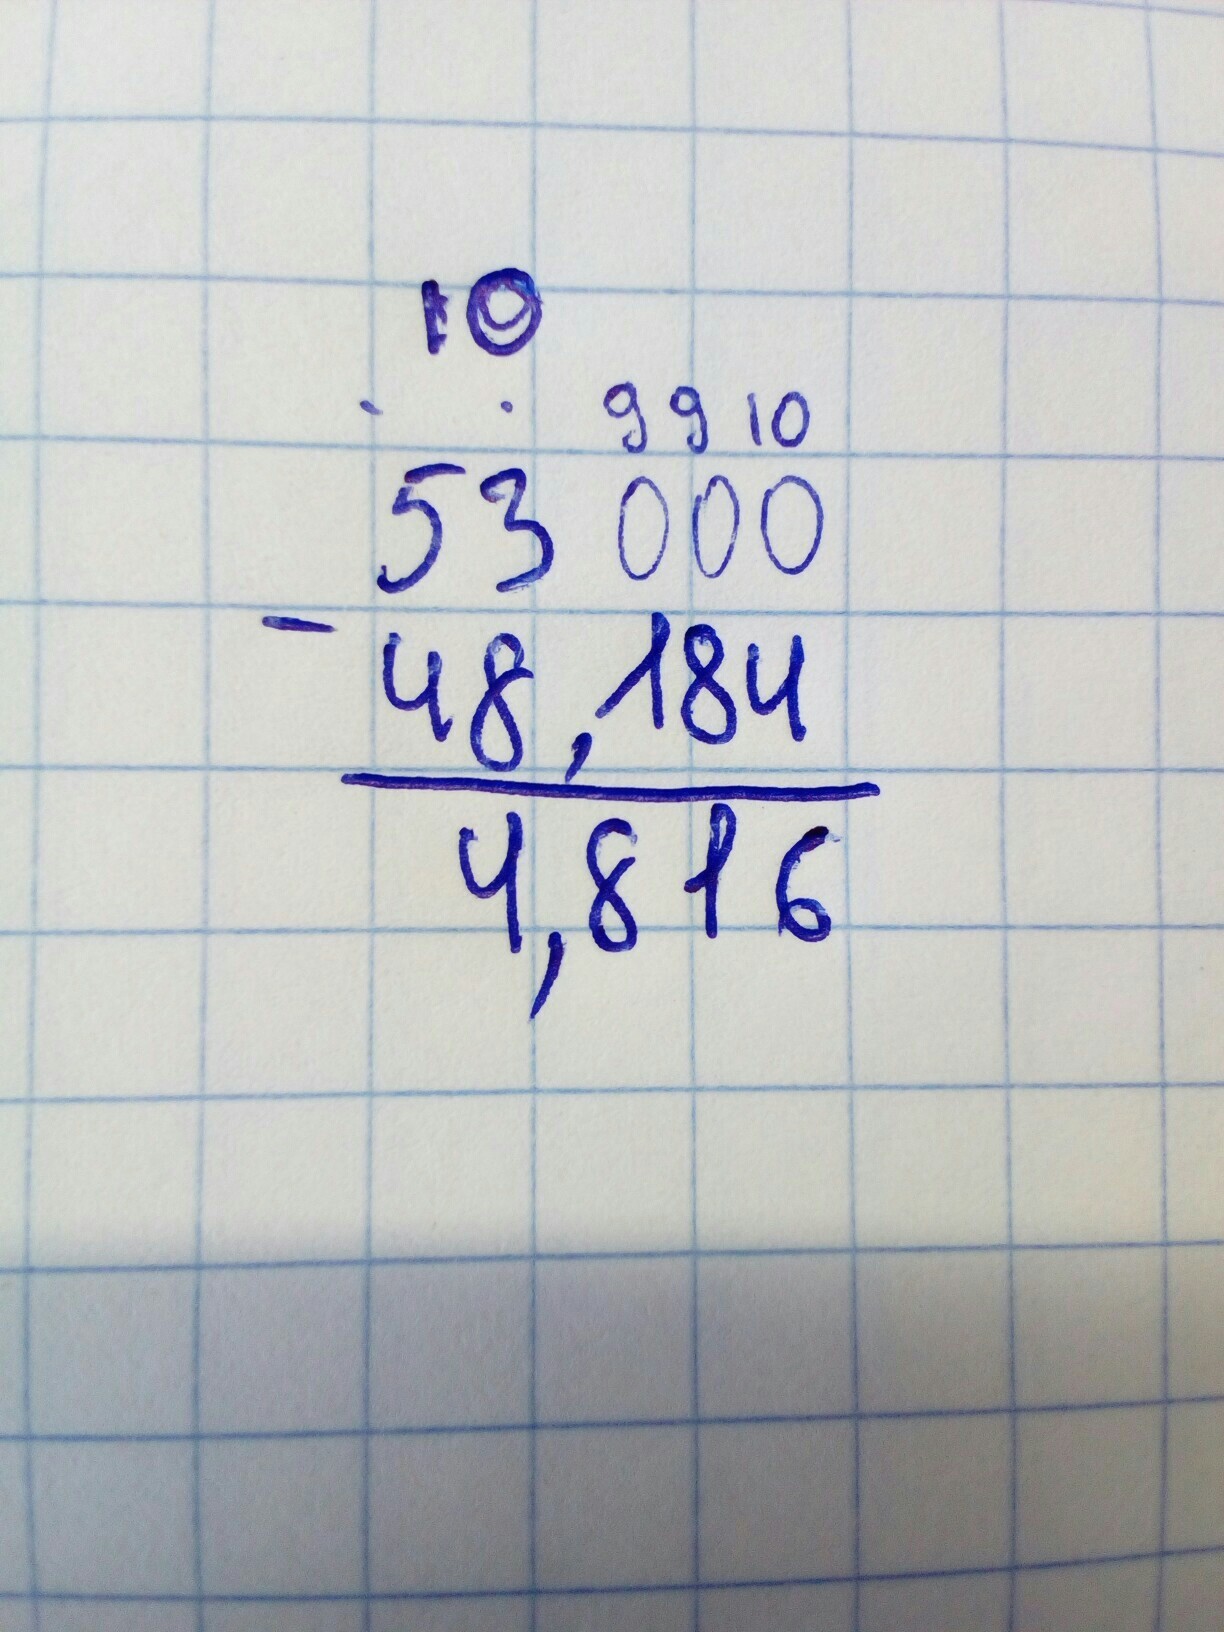 10
. . 9 9 10
53 000
- 48,184
4,816